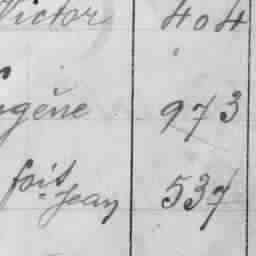 Victor 404
gène 973
foit
Jean 537